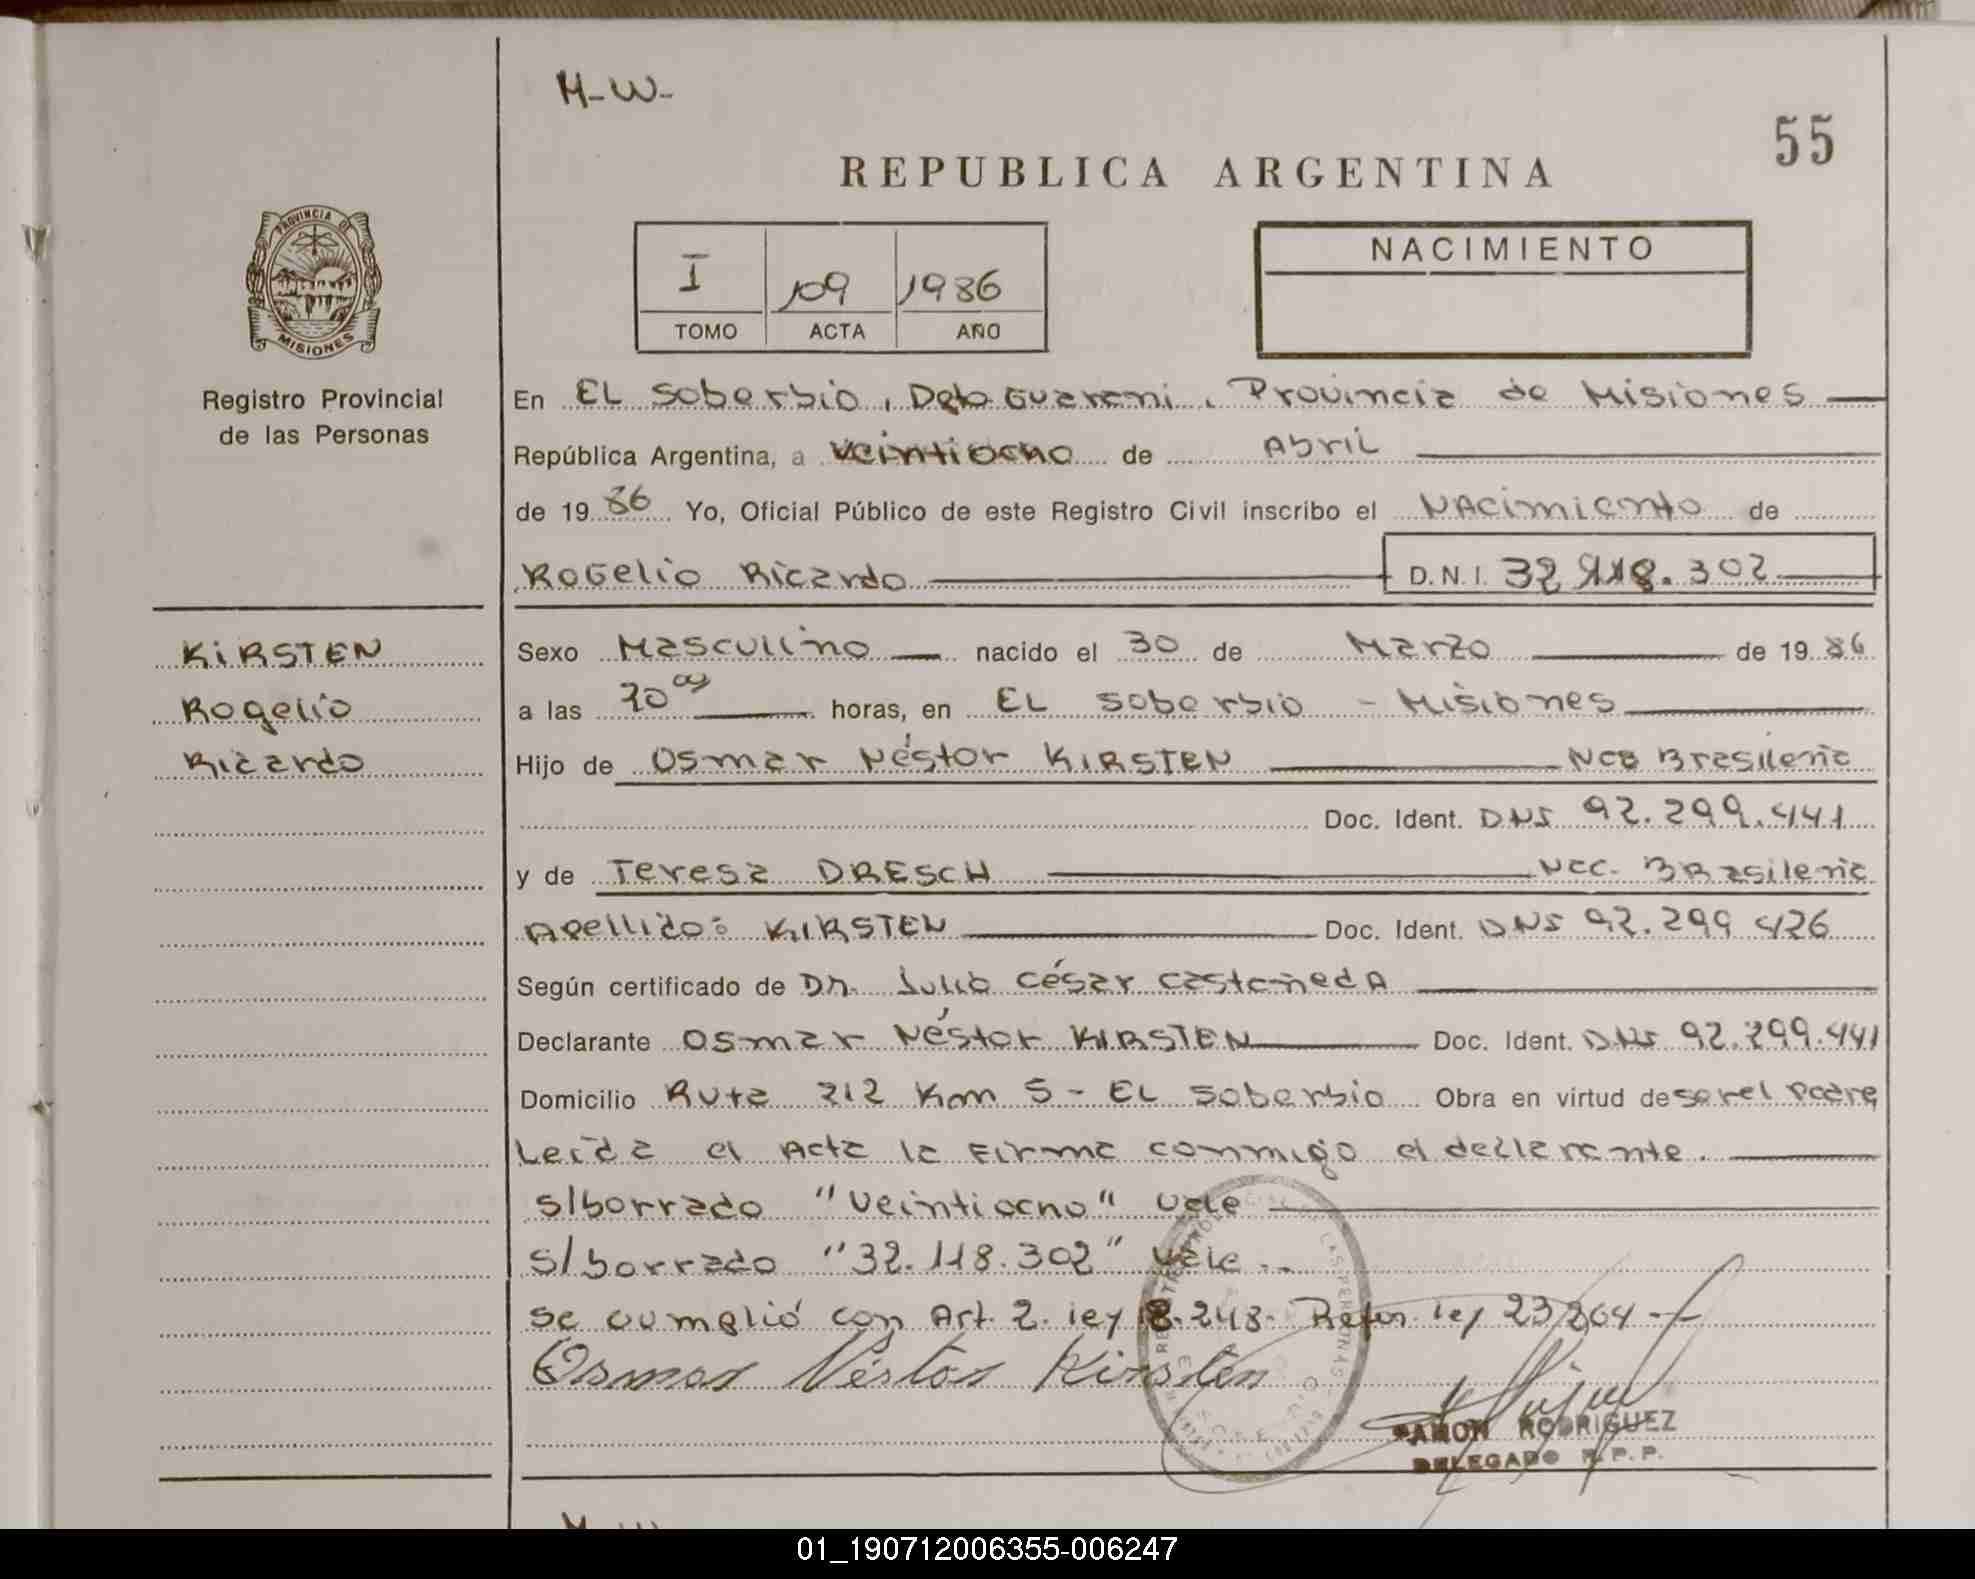 M-W-
55
REPUBLICA ARGENTINA
PROVINCIA DE
MISIONES
Registro Provincial
de las Personas
I 109 1986
TOMO ACTA AÑO
NACIMIENTO
En EL Soberbio, Dpto Guarani, Provincia de Misiones
República Argentina, a veintiocho de Abril
de 1986 Yo, Oficial Público de este Registro Civil inscribo el NAcimiento de
Rogelio Ricardo D.N.I. 32 118.302
KIRSTEN
Rogelio
Ricardo
Sexo Masculino nacido el 30 de Marzo de 1986
a las horas, en EL Soberbio - Misiones
Hijo de Osmar Néstor KIRSTEN Brasileña
Doc. Ident. DNI 92.299.441
y de Teresa DRESCH Nac. Brasileña
Apellido: KIRSTEN Doc. Ident. DNI 92.299 426
Según certificado de Dr. Julio César CastañedA
Declarante Osmar Néstor KIRSTEN Doc. Ident. DNI 92.299.441
Domicilio Ruta 212 Km 5 - EL Soberbio Obra en virtud de ser el padre
Leída el Acta la Firma conmigo el declarante.
s/borrado "Veintiocho" Vale
s/borrado "32.118.302" Vale..
Se cumplió con Art. 2. ley 18.248. Refor. ley 23264
Osmar Néstor Kirsten
RAMON RODRIGUEZ
DELEGADO R.P.P.
M-W-
01_190712006355-006247